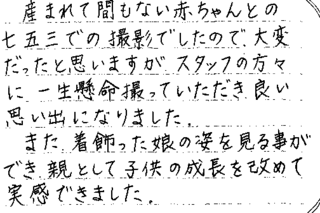 産まれて間もない赤ちゃんとの
七五三での撮影でしたので、大変
だったと思いますが スタッフの方々
に 一生懸命撮っていただき 良い
思い出になりました。
また、着飾った娘の姿を見る事が
でき、親として子供の成長を改めて
実感できました。